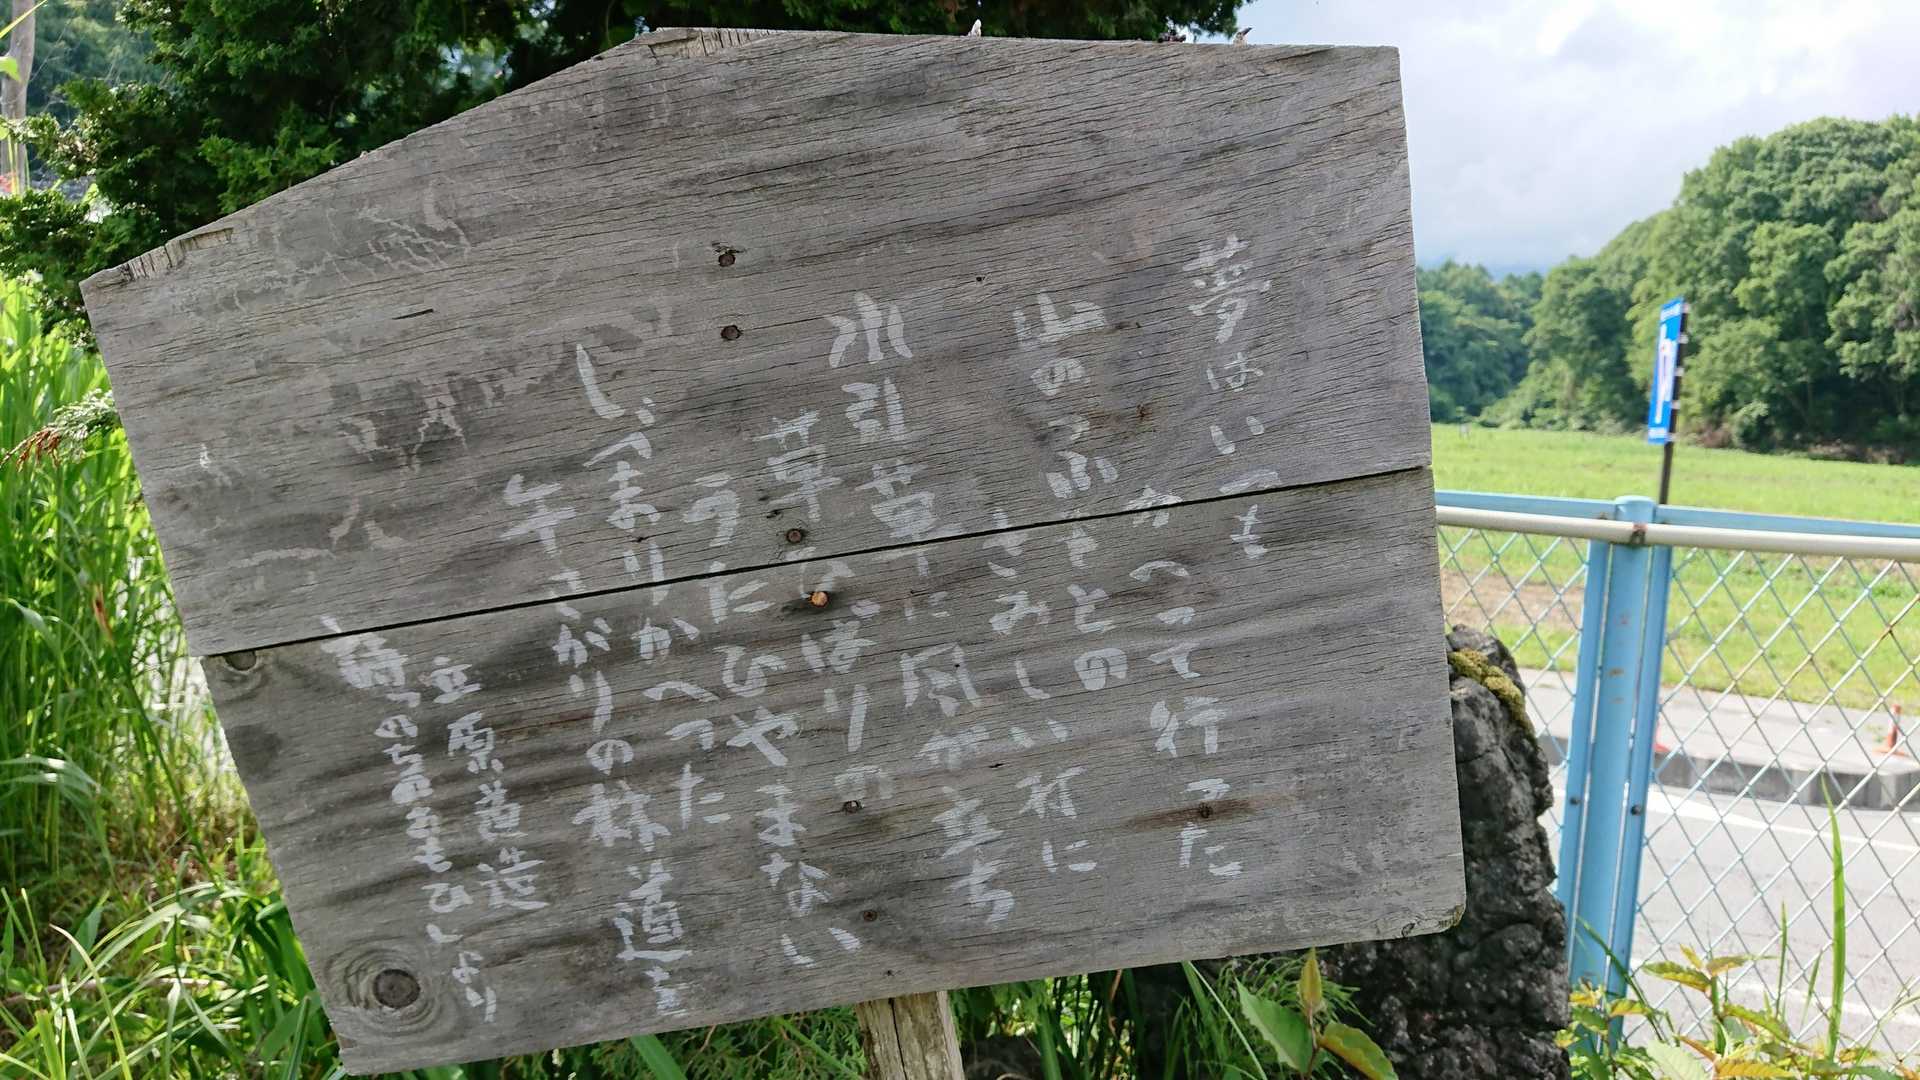 夢はいつも
かへつて行つた
山のふもとの
さみしい村に
水引草に風が立ち
草ひばりの
うたひやまない
しづまりかへつた
午さがりの林道を
立原道造
詩「のちのおもひ」より